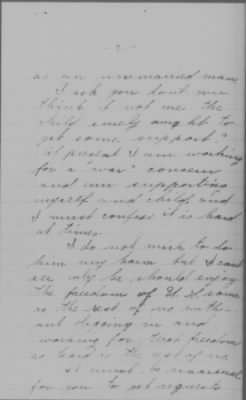 - 2 -
as an unmarried man.
I ask you dont you
think if not me the
child surely ought to
get some support?
At present I am working
for a "war" concern
and am supporting
myself and child, and
I must confess it is hard
at times.
I do not wish to do
him any harm but I cant
see why he should enjoy
the freedoms of U.S. same
as the rest of us with-
out digging in and
working for that freedom
as hard as the rest of us.
It must be unusual
for you to get requests